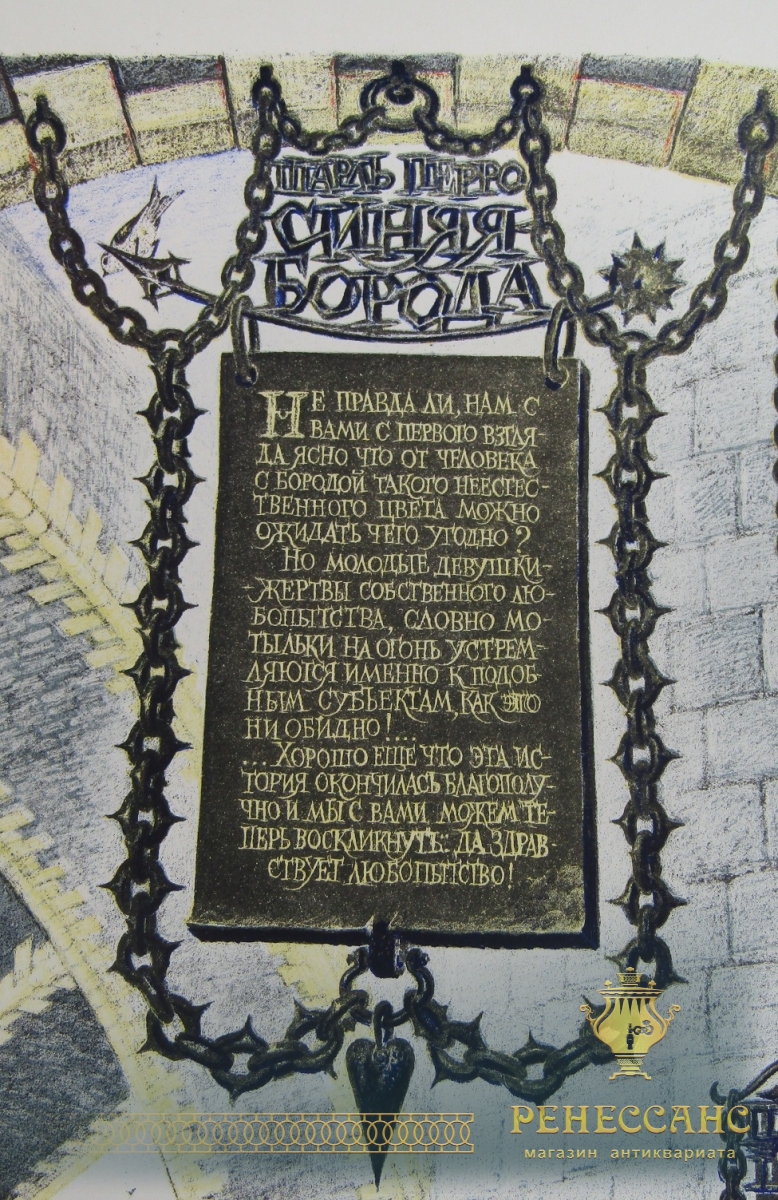 ШАРЛЬ ПЕРРО
СИНЯЯ
БОРОДА
НЕ ПРАВДА ЛИ, НАМ С
ВАМИ С ПЕРВОГО ВЗГЛЯ
ДА ЯСНО ЧТО ОТ ЧЕЛОВЕКА
С БОРОДОЙ ТАКОГО НЕЕСТЕС-
ТВЕННОГО ЦВЕТА МОЖНО
ОЖИДАТЬ ЧЕГО УГОДНО?
НО МОЛОДЫЕ ДЕВУШКИ-
-ЖЕРТВЫ СОБСТВЕННОГО ЛЮ-
БОПЫТСТВА, СЛОВНО МО-
ТЫЛЬКИ НА ОГОНЬ УСТРЕМ-
ЛЯЮТСЯ ИМЕННО К ПОДОБ-
НЫМ СУБЪЕКТАМ, КАК ЭТО
НИ ОБИДНО!...
...ХОРОШО ЕЩЕ ЧТО ЭТА ИС-
ТОРИЯ ОКОНЧИЛАСЬ БЛАГОПОЛУ-
ЧНО И МЫ С ВАМИ МОЖЕМ ТЕ-
ПЕРЬ ВОСКЛИКНУТЬ: ДА ЗДРАВ
СТВУЕТ ЛЮБОПЫТСТВО!
РЕНЕССАНС
магазин антиквариата